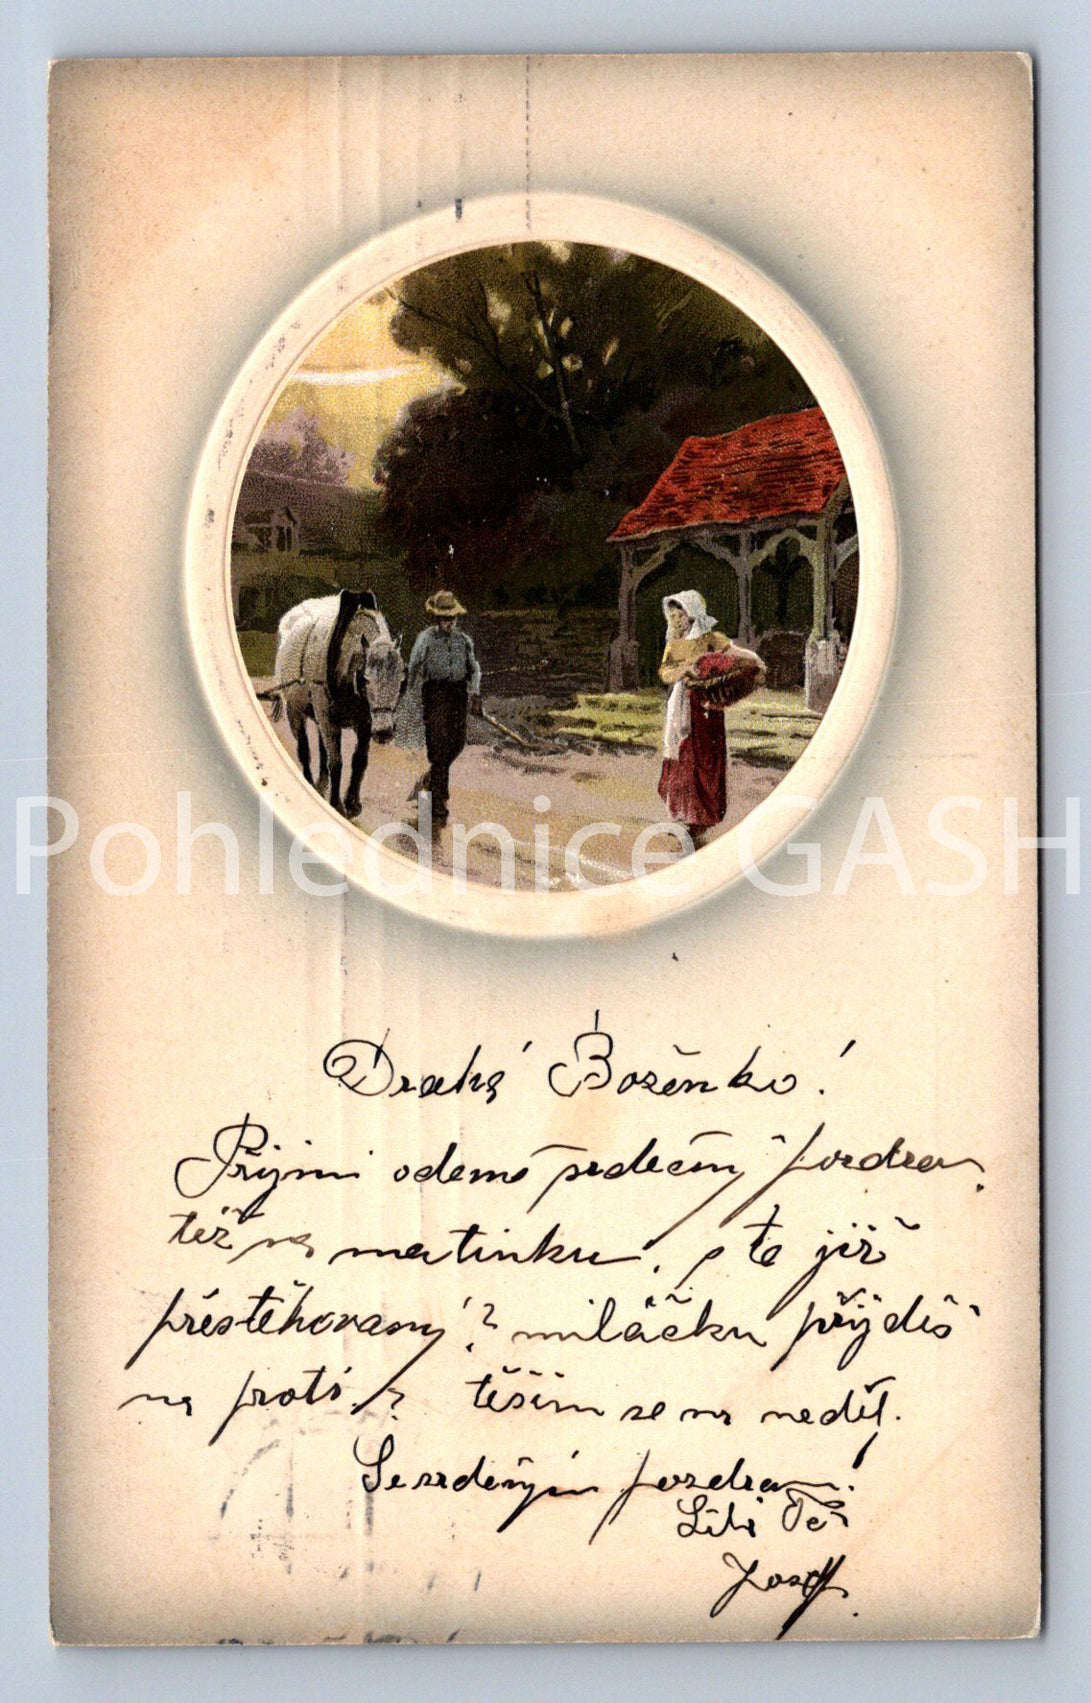 Pohlednice GASH
Drahá Boženko!
Přijmi odemě srdečný pozdrav,
též na matinku. ste již
přestěhovaný? miláčku přijdeš
na proti.? těším se na neděl.
Se srdečným pozdravem!
Líbá Tě
Josef.